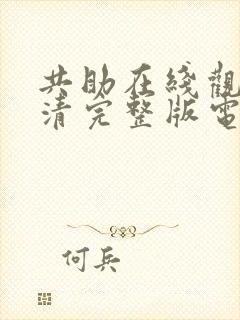 共助在綫觀
清完整版電
何兵